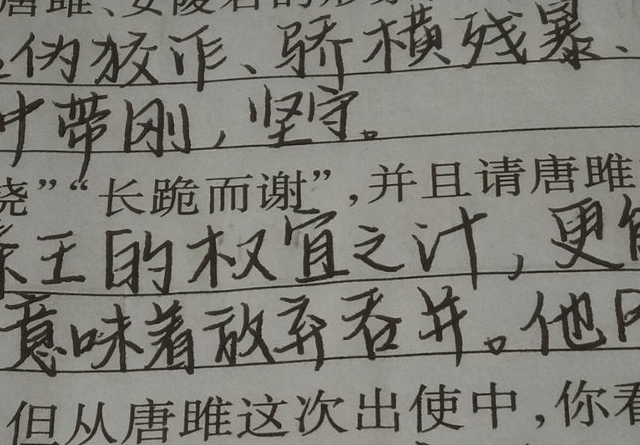 唐雎、安陵君的形象
伪狡诈、骄横残暴、
中带刚，坚守。
挠”“长跪而谢”，并且请唐雎
秦王的权宜之计，更
意味着放弃吞并。他
但从唐雎这次出使中，你看